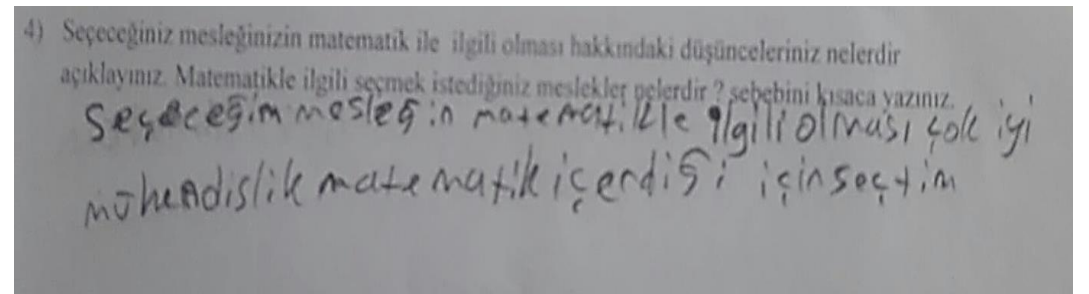 4) Seçeceğiniz mesleğinizin matematik ile ilgili olması hakkındaki düşünceleriniz nelerdir
açıklayınız. Matematikle ilgili seçmek istediğiniz meslekler nelerdir ? sebebini kısaca yazınız.
Seçeceğim mesleğin matematikle ilgili olması çok iyi
mühendislik matematik içerdiği için seçtim